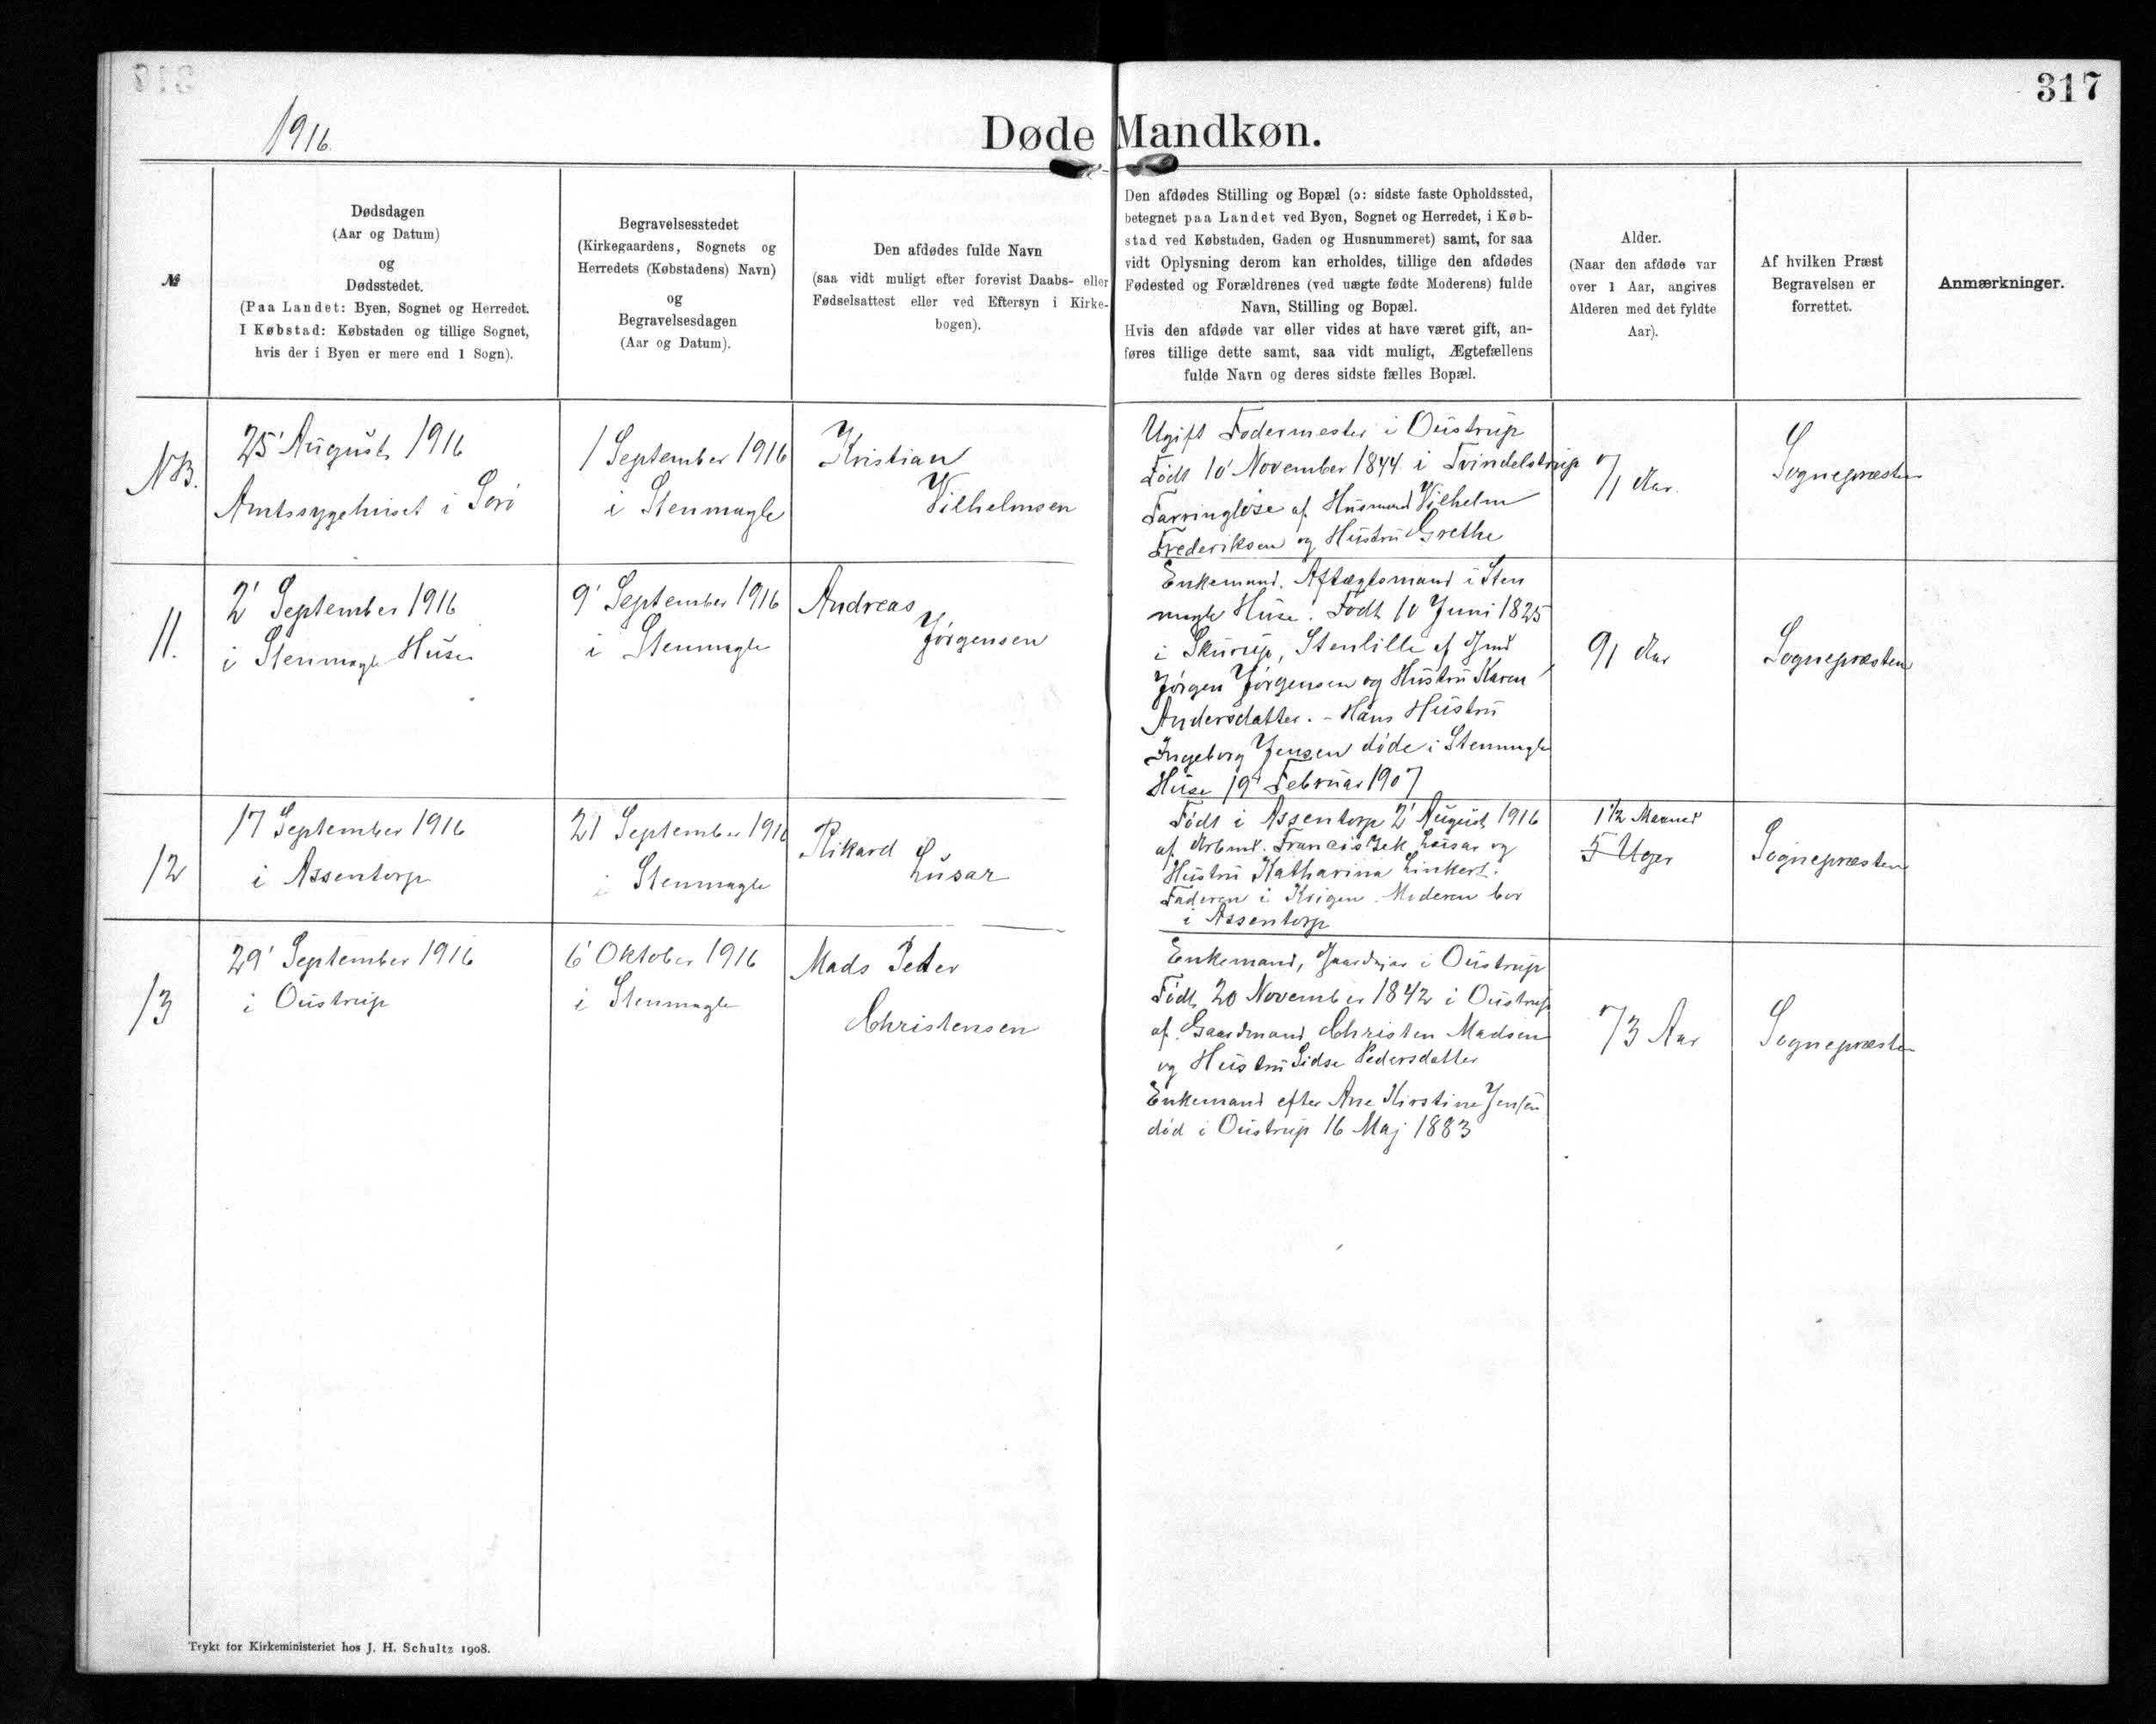 317
1916.
Døde Mandkøn.
№
Dødsdagen
(Aar og Datum)
og
Dødsstedet.
(Paa Landet: Byen, Sognet og Herredet.
I Købstad: Købstaden og tillige Sognet,
hvis der i Byen er mere end 1 Sogn).
Begravelsesstedet
(Kirkegaardens, Sognets og
Herredets (Købstadens) Navn)
og
Begravelsesdagen
(Aar og Datum).
Den afdødes fulde Navn
(saa vidt muligt efter forevist Daabs- eller
Fødselsattest eller ved Eftersyn i Kirke-
bogen).
Den afdødes Stilling og Bopæl (ɔ: sidste faste Opholdssted,
betegnet paa Landet ved Byen, Sognet og Herredet, i Køb-
stad ved Købstaden, Gaden og Husnummeret) samt, for saa
vidt Oplysning derom kan erholdes, tillige den afdødes
Fødested og Forældrenes (ved uægte fødte Moderens) fulde
Navn, Stilling og Bopæl.
Hvis den afdøde var eller vides at have været gift, an-
føres tillige dette samt, saa vidt muligt, Ægtefællens
fulde Navn og deres sidste fælles Bopæl.
Alder.
(Naar den afdøde var
over 1 Aar, angives
Alderen med det fyldte
Aar).
Af hvilken Præst
Begravelsen er
forrettet.
Anmærkninger.
NB.
25' August 1916
Amtssygehuset i Sorø
1 September 1916
i Stenmagle
Kristian
Vilhelmsen
Ugift Fodermester i Oustrup
Født 10' November 1844 i Tvindelstrup
Farringløse af Husmand Vilhelm
Frederiksen og Hustru Grethe
71 Aar.
Sognepræsten
11.
2' September 1916
i Stenmagle Huse
9' September 1916
i Stenmagle
Andreas
Jørgensen
Enkemand. Aftægtsmand i Sten
magle Huse. Født 10 Juni 1825
i Skurup, Stenlille af Gmd
Jørgen Jørgensen og Hustru Karen
Andersdatter. - Hans Hustru
Ingeborg Jensen døde i Stenmagle
Huse 19' Februar 1907
91 Aar
Sognepræsten
12
17 September 1916
i Assentorp
21 September 1916
i Stenmagle
Rikard
Lusar
Født i Assentorp 2' August 1916
af Arbmd. Francisek Lusar og
Hustru Katharina Linkert.
Faderen i Krigen. Moderen bor
i Assentorp
1 1/2 Maaned
5 Uger
Sognepræsten
13
29' September 1916
i Oustrup
6' Oktober 1916
i Stenmagle
Mads Peter
Christensen
Enkemand, Gaardejer i Oustrup
Født 20 November 1842 i Oustrup
af Gaardmand Christen Madsen
og Hustru Sidse Pedersdatter
Enkemand efter Ane Kirstine Jensen
død i Oustrup 16 Maj 1883
73 Aar
Sognepræsten
Trykt for Kirkeministeriet hos J. H. Schultz 1908.